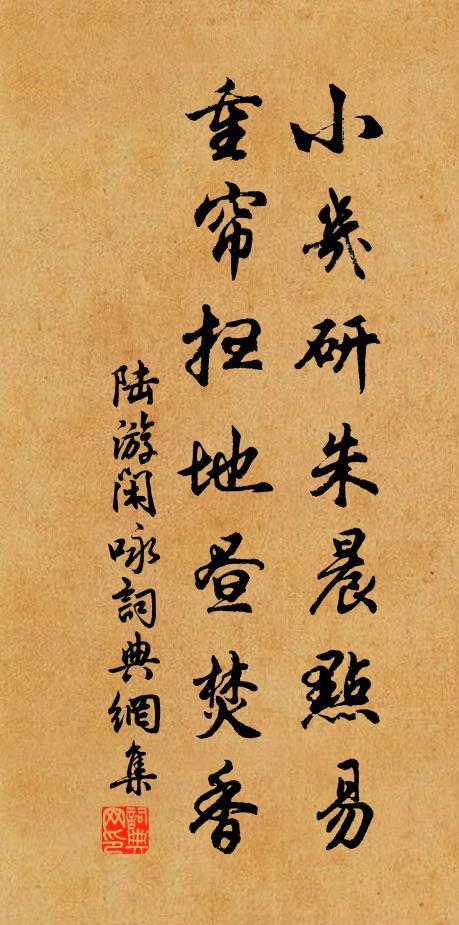 小几研朱晨點易
重帘扫地昼焚香
陆游闲咏詞典網集
詞典网印